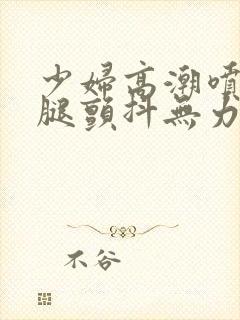 少婦高潮噴
腿顫抖無力
不谷